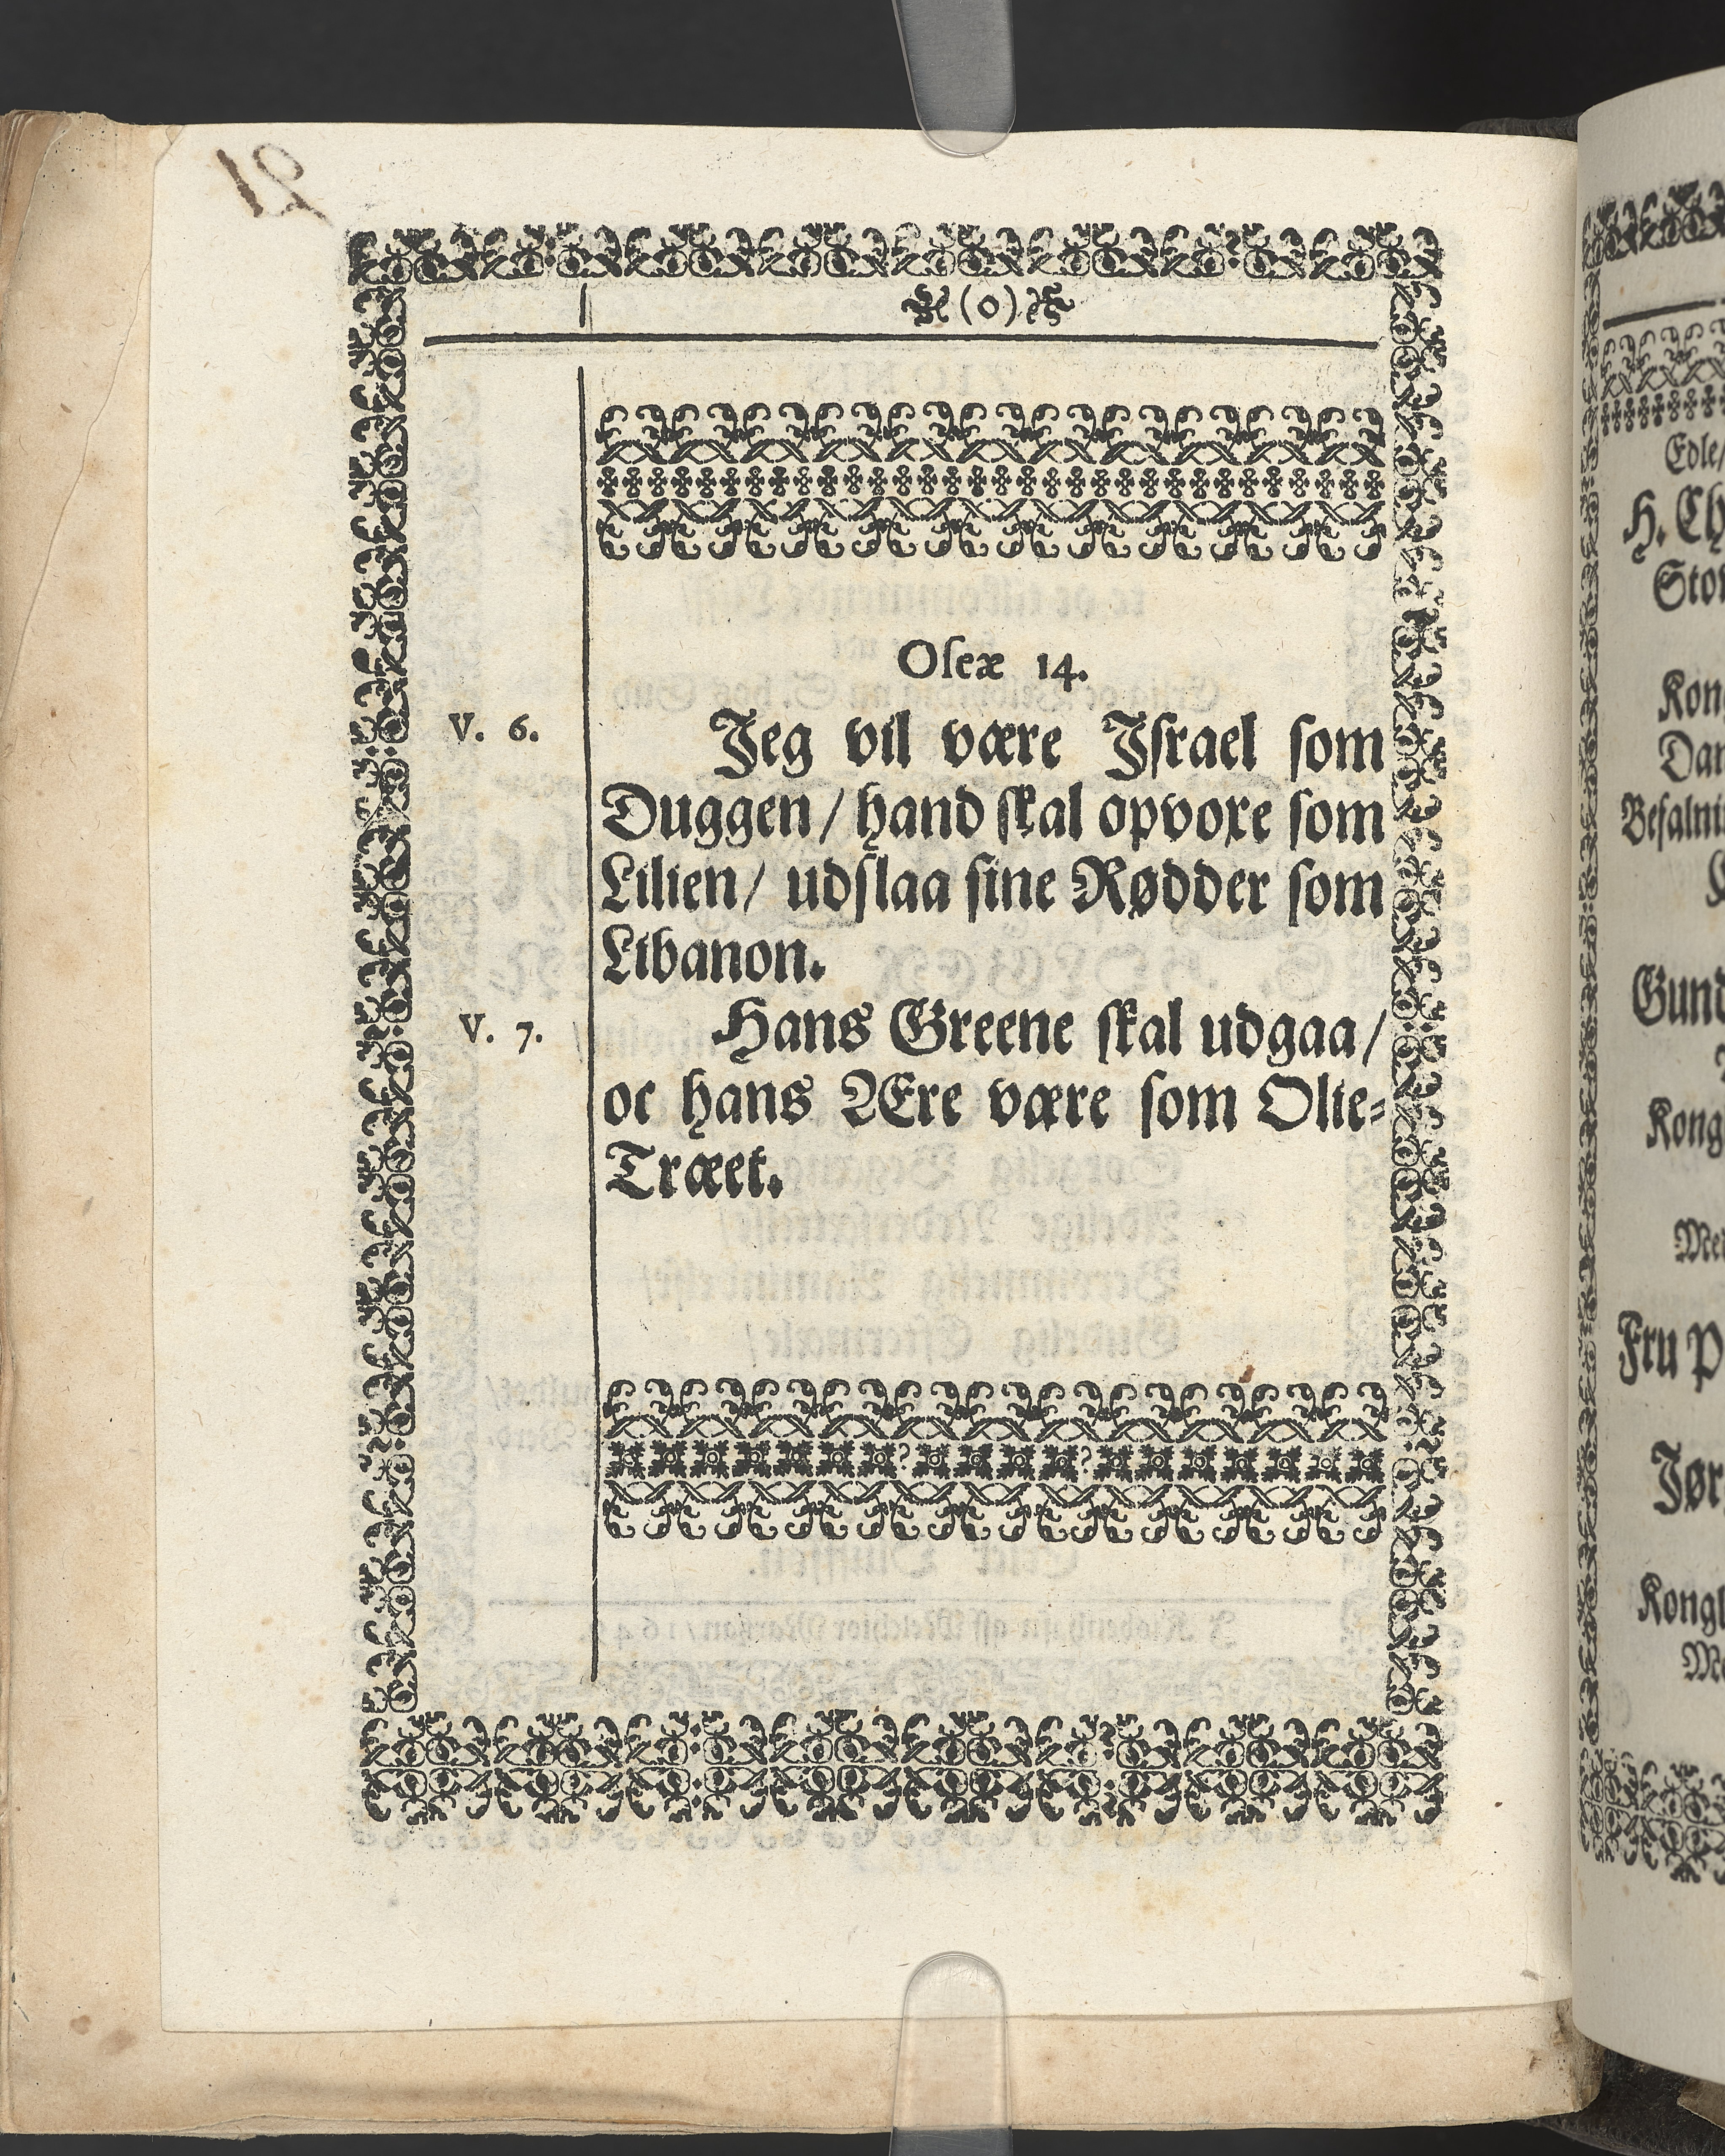 (0)
Oseæ 14.
V. 6. Jeg vil være Jsrael som
Duggen / hand skal opvoxe som
Lilien / udslaa sine Rødder som
Libanon.
V. 7. Hans Greene skal udgaa /
oc hans Ære være som Olie=
Træet.
Edle/
H. Ch
Kon
Dan
Befalni
Gund
Kong
Fru P
Jør
Kongl